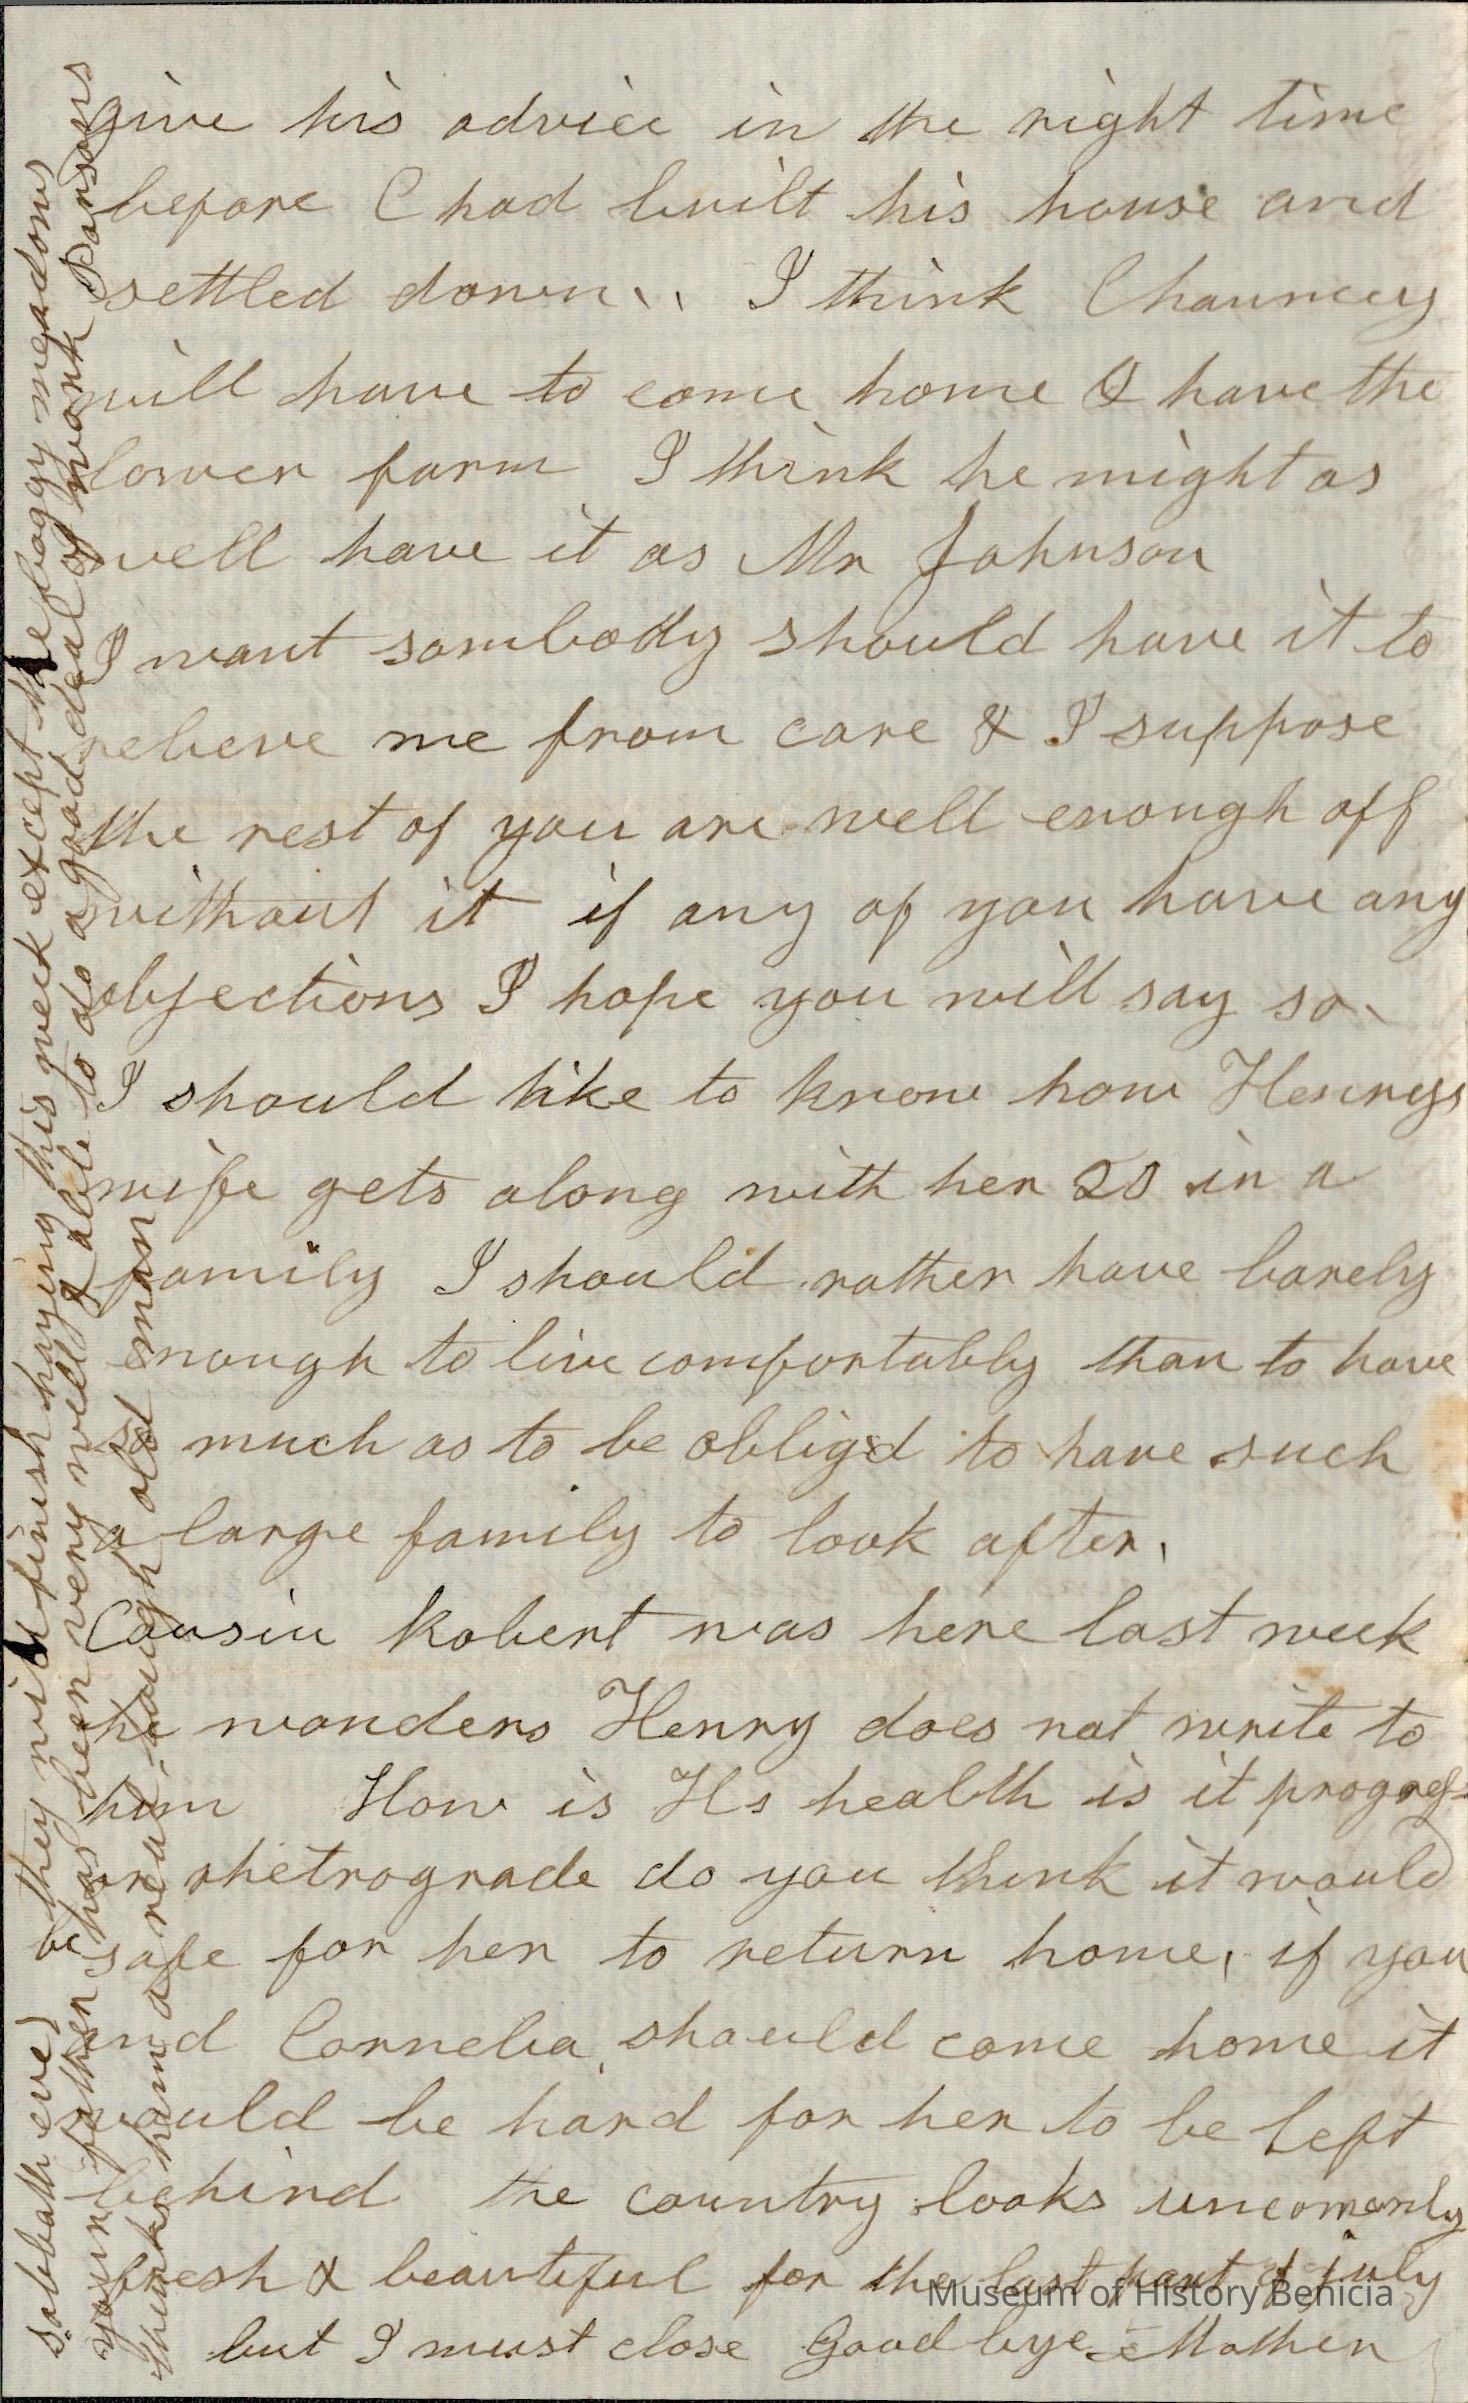 give his advice in the right time
before C had built his house and
settled down.. I think Chauncey
will have to come home & have the
lower farm I think he might as
well have it as Mr Johnson
I want sombody should have it to
relieve me from care & I suppose
the rest of you are well enough off
without it if any of you have any
objections I hope you will say so.
I should like to know how Henrys
wife gets along with her 20 in a
family I should rather have barely
enough to live comfortably than to have
so much as to be obligd to have such
a large family to look after.
Cousin Robert was here last week
he wonders Henry does not write to
him How is Hs health is it progress
or rhetrograde do you think it would
be safe for her to return home, if you
and Cornelia, should come home it
would be hard for her to be left
behind the country looks uncomonly
fresh & beautiful for the last part of july
but I must close Good bye - Mother
sabbath eve) they will finish haying this week except the boggy meadows
your father has been very well & able to do a good deal of work Parsons
thinks him a real tough old man
Museum of History Benicia